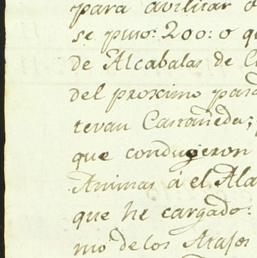 para avilitar
se puso: 200: o q
de Alcabalas de C
del proximo pasa
tevan Castañeda;
que condugeron
Animas á el Ala
que he cargado:
mo de los Atajos